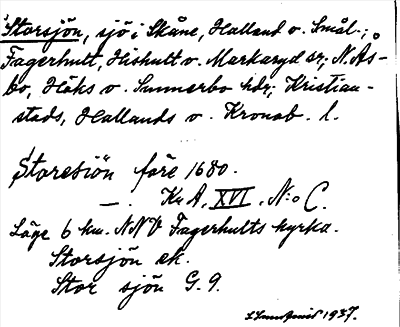 Storsjön, sjö i Skåne, Halland o. Smål.;
Fagerhult, Hishult o. Markaryd sr; N. Ås-
bo, Höks o. Sunnerbo hdr; Kristian-
stads, Hallands o. Kronob. l.
Storesiön före 1680.
—. Kr A, XVI, N:o C.
Läge 6 km. NNV Fagerhults kyrka.
Storsjön ek.
Stor sjön G. 9.
1937.